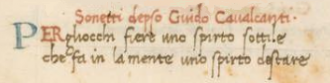 Sonetti depso Guido Caualcanti·
PER gliocchi fiere uno spirto sottile
che fa in la mente uno spirto destare